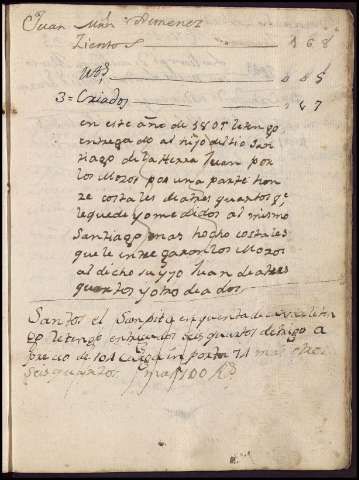 Juan Mrn Ximenez
Zientos 168
Uts, 005
3 = Criados 187
en este año de 1801 le tengo
entregado al hijo del tio San
tiago de la tierra Juan por
los Mozos por una parte hon
ze costales de a tres quartos qe
le quede yo me didos al mismo
Santiago mas hocho costales
que le entregaron los Mozos
al dicho su yjo Juan de a tres
quartos y otro de a dos
Santos el San pita cinquenta de
go le tengo entregados seis quartos de trigo a
precio de 101 carga in porta 71
seis quartos mas 100 Rs